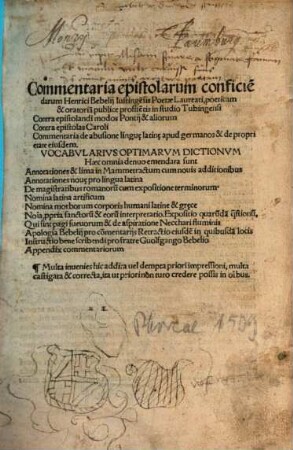 Commentaria epistolarum conficiē
darum Henrici Bebelij Iustingēsis Poetæ Laureati, poeticam
& oratoriā publice profitētis in studio Tubingensi
Contra epistolandi modos Pontij & aliorum
Contra epistolas Caroli
Commentaria de abusione linguę latinę apud germanos & de propri
etate eiusdem.
VOCABVLARIVS OPTIMARVM DICTIONVM
Hæc omnia denuo emendata sunt
Annotationes & lima in Mammetractum cum nouis additionibus
Annotationes nouę pro lingua latina
De magistratibus romanorū cum expositione terminorum
Nomina latina artificum
Nomina morborum corporis humani latine & gręce
Noīa ,ppria sanctorū & eorū interpretatio. Expositio quarūdā q̄stionū.
Qui sint pagi sueuorum & de aspiratione Neccharí fluminis
Apologia Bebelij pro cōmentarijs Retractio eiusdē in quibusdā locis
Instructio bene scribendi pro fratre Guolfgango Bebelio
Appendix commentariorum
¶ Multa inuenies hic addita vel dempta priori impressioni, multa
castigata & correcta, ita ut priori non iuro credere possis in oībus.